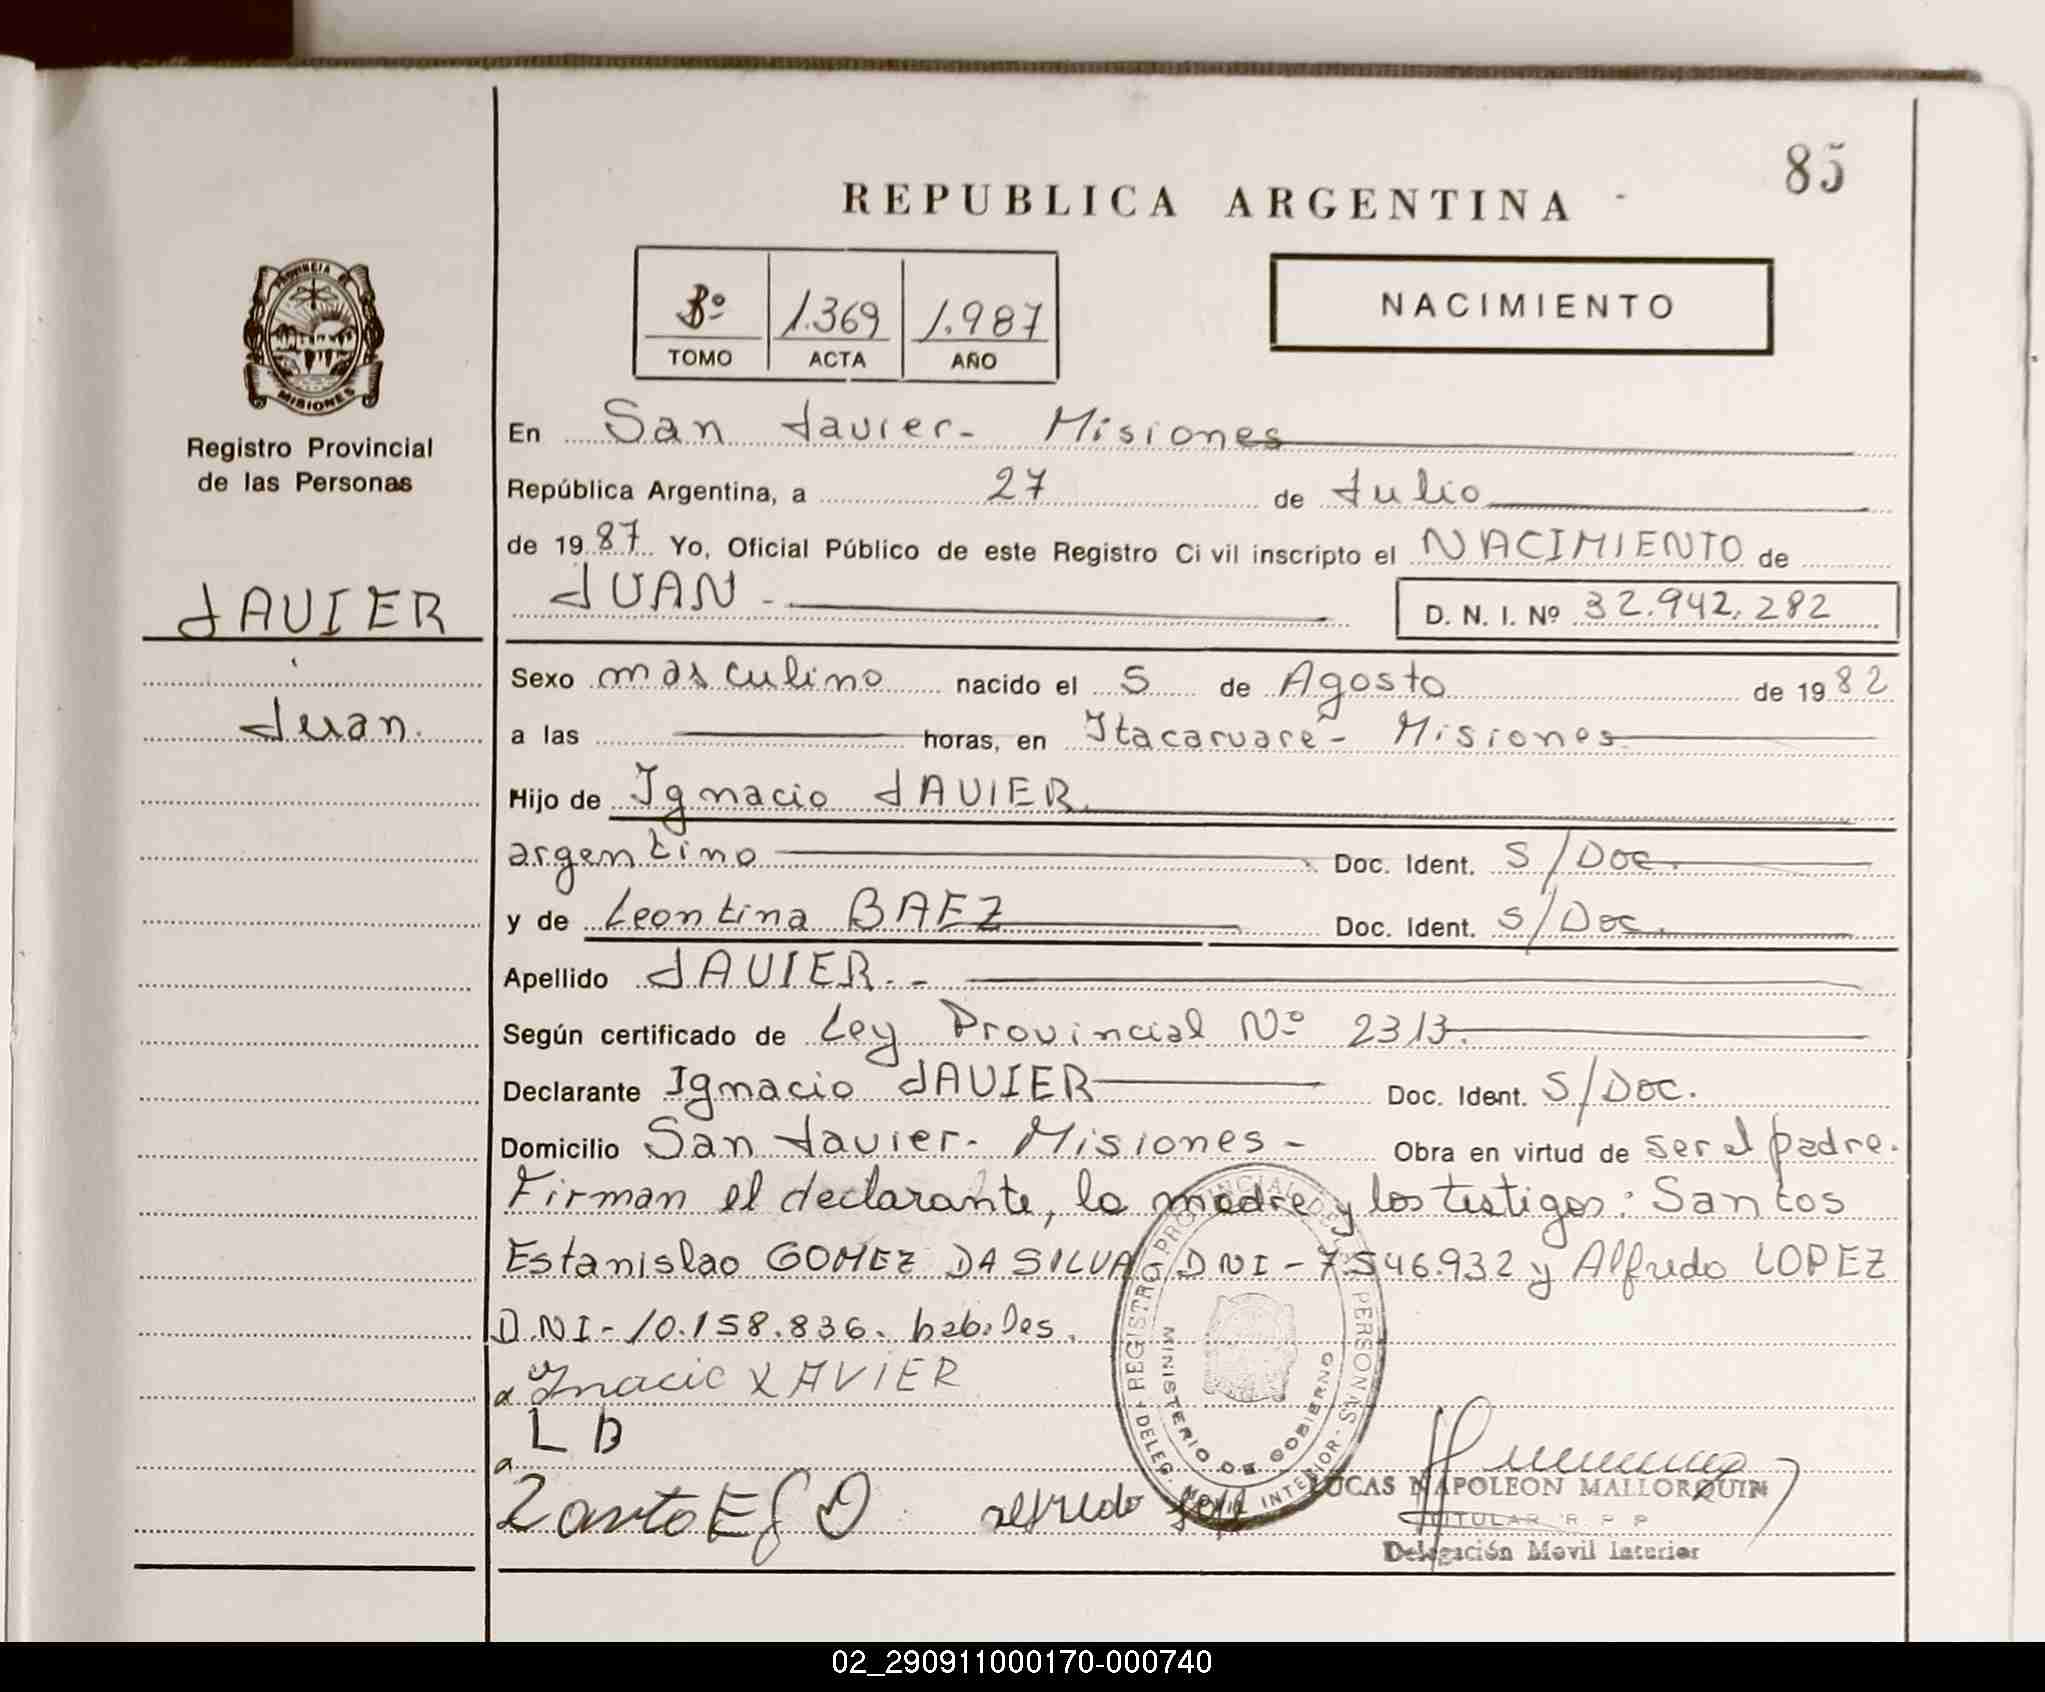 85
REPUBLICA ARGENTINA
PROVINCIA DE
MISIONES
Registro Provincial
de las Personas
8º 1.369 1.987
TOMO ACTA AÑO
NACIMIENTO
En San Javier - Misiones
República Argentina, a 27 de Julio
de 1987 Yo, Oficial Público de este Registro Civil inscripto el NACIMIENTO de
JUAN - D. N. I. Nº 32.942.282
JAVIER
Juan.
Sexo masculino nacido el 5 de Agosto de 1982
a las horas, en Itacaruare - Misiones
Hijo de Ignacio JAVIER.
argentino Doc. Ident. S/Doc.
y de Leontina BAEZ Doc. Ident. S/Doc.
Apellido JAVIER. -
Según certificado de Ley Provincial Nº 2313.
Declarante Ignacio JAVIER Doc. Ident. S/Doc.
Domicilio San Javier - Misiones - Obra en virtud de ser el padre.
Firman el declarante, la madre y los testigos: Santos
Estanislao GOMEZ DA SILVA DNI - 7.546.932 y Alfredo LOPEZ
D.NI - 10.158.836. habiles.
a Inacic XAVIER
L B
a
alfredo
REGISTRO PROVINCIAL DE LAS PERSONAS - DELEG. MOVIL INTERIOR -
MINISTERIO DE GOBIERNO
LUCAS NAPOLEON MALLORQUIN
TITULAR R P P
Delegación Movil Interior
02_290911000170-000740